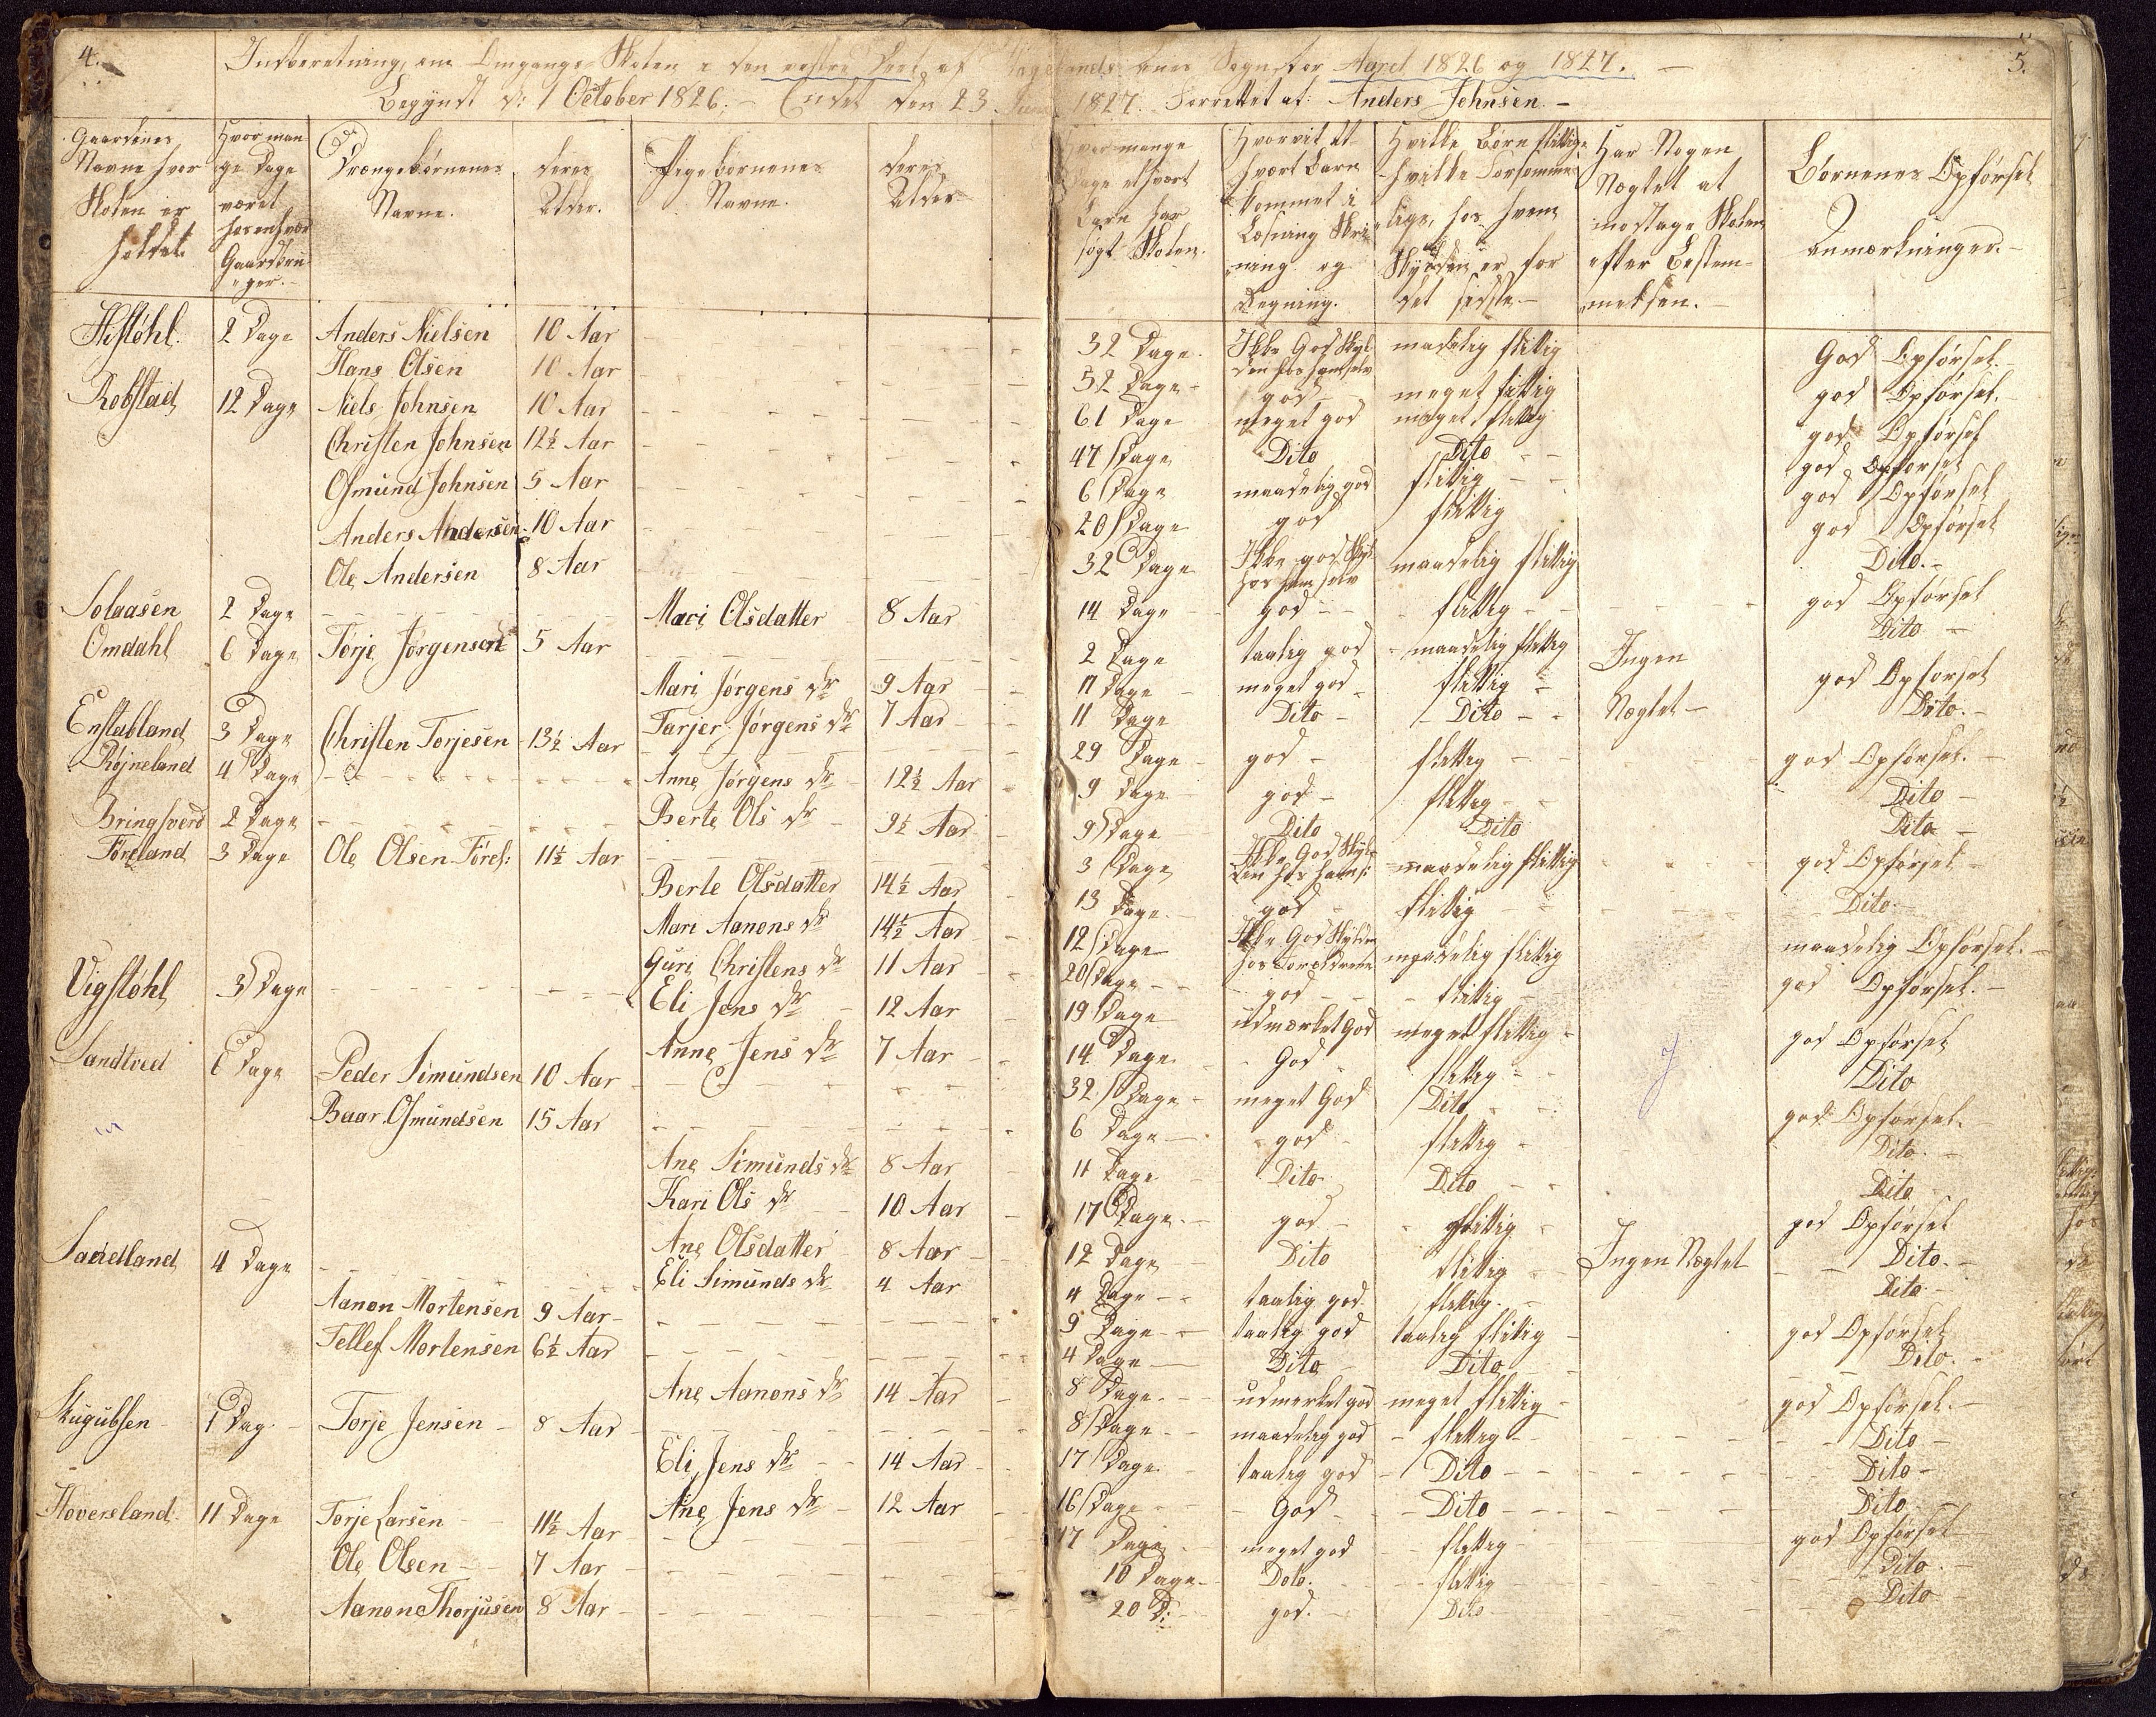 4.
5.
Indberetning, om Omgangs-Skolen i den vestre Deel af Vegusdals Annex Sogn for Aaret 1826 og 1827. –
Begyndt d: 1 October 1826. – Endet den 23 Juni 1827. Forrettet af: Anders Johnsen. –
Gaardenes Navne hvor Skolen er holdet. | Hvor mange Dage været hos enhver Gaardbruger. – | Drængebørnenes Navne. | deres Alder. | Pigebørnenes Navne. | deres Alder | Hvor mange Dage ethvert Barn har søgt Skolen. | Hvorvit et hvert Barn kommet i Læsning Skrivning og Regning. | Hvilke Børn flittige hvilke Forsømmelige, hos hvem Skylden er for det sidste – | Har Nogen Nægtet at modtage Skolen efter Bestemmelsen. – | Børnenes Opførsel Anmærkninger. –
2 Dage | Anders Nielsen | 10 Aar | 32 Dage. | Ikke God Skylden hos ham selv | maadelig flittig | God Opførsel. –
Hans Olsen | 10 Aar | 52 Dage – | god – | meget flittig | god Opførsel. –
Robstad | 12 Dage | Niels Johnsen | 10 Aar | 61 Dage | meget god | meget flittig | god Opførsel
Christen Johnsen | 12½ Aar | 47 Dage | Dito | Dito | god Opførsel
Osmund Johnsen | 5 Aar | 6 Dage | maadelig god | flittig | god Opførsel
Anders Andersen | 10 Aar | 20 Dage | god | flittig | god Opførsel
Ole Andersen | 8 Aar | 32 Dage | Ikke god Skyld hos ham selv | maadelig flittig | Dito. –
Solaasen | 2 Dage | Mari Olsdatter | 8 Aar | 14 Dage | god – | flittig | god Opførsel
Omdahl | 6 Dage | Torje Jørgensen | 5 Aar | 2 Dage | taalig god | maadelig flittig | Ingen | Dito –
Mari Jørgens dr | 9 Aar | 11 Dage | meget god | flittig | Nægtet – | god Opførsel
Tarjer Jørgens dr | 7 Aar | 11 Dage | Dito – | Dito – | Dito. –
Enstabland | 3 Dage | Christen Torjesen | 13½ Aar | 29 Dage | god – | flittig | god Opførsel. –
Røjneland | 4 Dage | Anne Jørgens dr | 12½ Aar | 9 Dage | god – | flittig | Dito –
Bringsverd | 2 Dage | Berte Ols dr | 9½ Aar | 9 Dage | Dito | Dito | Dito –
Foreland | 3 Dage | Ole Olsen Forel: | 11½ Aar | 3 Dage | Ikke God Skylden hos ham s: | maadelig flittig | god Opførsel –
Berte Olsdatter | 14½ Aar | 13 Dage. | god – | flittig | Dito –
Mari Aanons dr | 14½ Aar | 12 Dage | Ikke God Skylden hos Foreldrene | maadelig flittig | maadelig Opførsel. –
Guri Christens dr | 11 Aar | 20 Dage – | god – | flittig – | god Opførsel. –
Vigstøhl | 3 Dage | Eli Jens dr | 12 Aar | 19 Dage | udmærket God | meget flittig – | god Opførsel
Anne Jens dr | 7 Aar | 14 Dage | God | flittig – | Dito
Sandtved | 6 Dage | Peder Simundsen | 10 Aar | 32 Dage – | meget God | Dito | god Opførsel. –
Baar Osmundsen | 15 Aar | 6 Dage – | god – | flittig – | Dito. –
Ane Simunds dr | 8 Aar | 11 Dage | Dito – | Dito | Dito
Kari Ols dr | 10 Aar | 17 Dage. – | god – | flittig | god Opførsel
Ane Olsdatter | 8 Aar | 12 Dage | Dito | flittig | Ingen Nægtet | Dito. –
4 Dage | Eli Simunds dr | 4 Aar | 4 Dage – | taalig god | flittig. – | Dito. –
Aanon Mortensen | 9 Aar | 9 Dage – | taalig god | taalig flittig | god Opførsel
Tellef Mortensen | 6½ Aar | 4 Dage – | Dito | Dito | Dito. –
Ane Aanons dr | 14 Aar | 8 Dage. – | udmerket god | meget flittig – | god Opførsel. –
1 Dag. – | Torje Jensen – | 8 Aar | 8 Dage – | maadelig god | flittig – | Dito –
Eli Jens dr | 14 Aar | 17 Dage. | taalig god | Dito – | Dito –
Ane Jens dr | 12 Aar | 16 Dage | God – | Dito – | Dito
Hoversland. | 11 Dage | Torje Larsen | 11½ Aar | 17 Dage | meget god | flittig – | god Opførsel –
Ole Olsen | 7 Aar | 10 Dage – | Dito. | flittig | Dito. –
Aanon Thorjusen | 8 Aar | 20 D: | god. – | Dito – | Dito